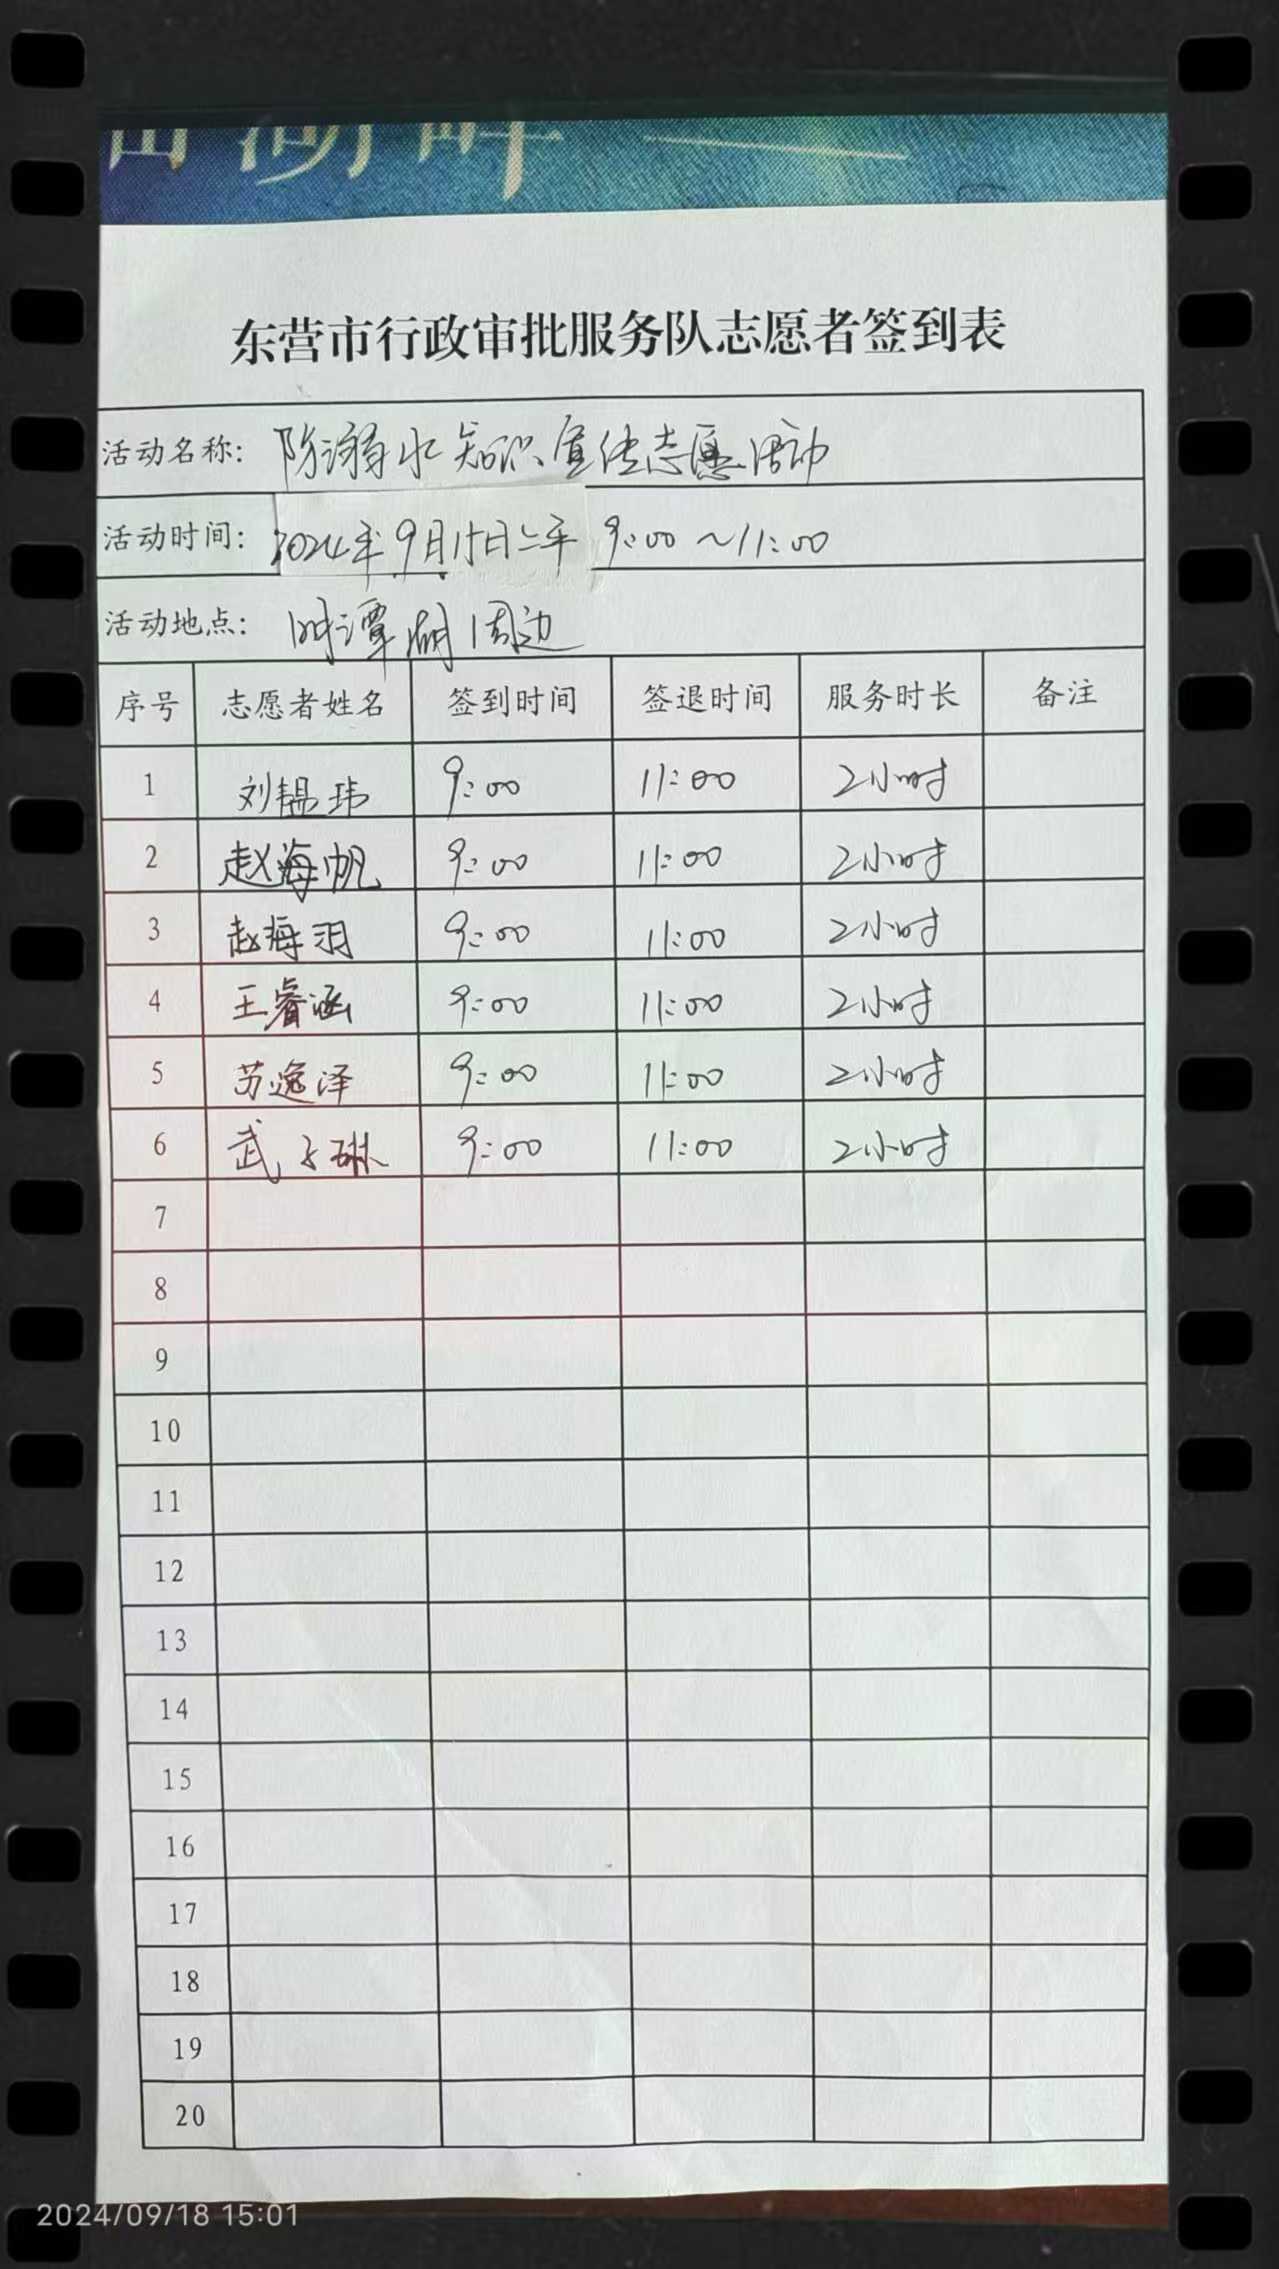 湖畔
东营市行政审批服务队志愿者签到表
活动名称： 防溺水知识宣传志愿活动
活动时间： 2024年9月15日上午 9:00～11:00
活动地点： 明潭湖周边
序号 志愿者姓名 签到时间 签退时间 服务时长 备注
1 刘韫玮 9:00 11:00 2小时
2 赵海帆 9:00 11:00 2小时
3 赵海羽 9:00 11:00 2小时
4 王睿涵 9:00 11:00 2小时
5 苏逸泽 9:00 11:00 2小时
6 武子琳 9:00 11:00 2小时
7
8
9
10
11
12
13
14
15
16
17
18
19
20
2024/09/18 15:01